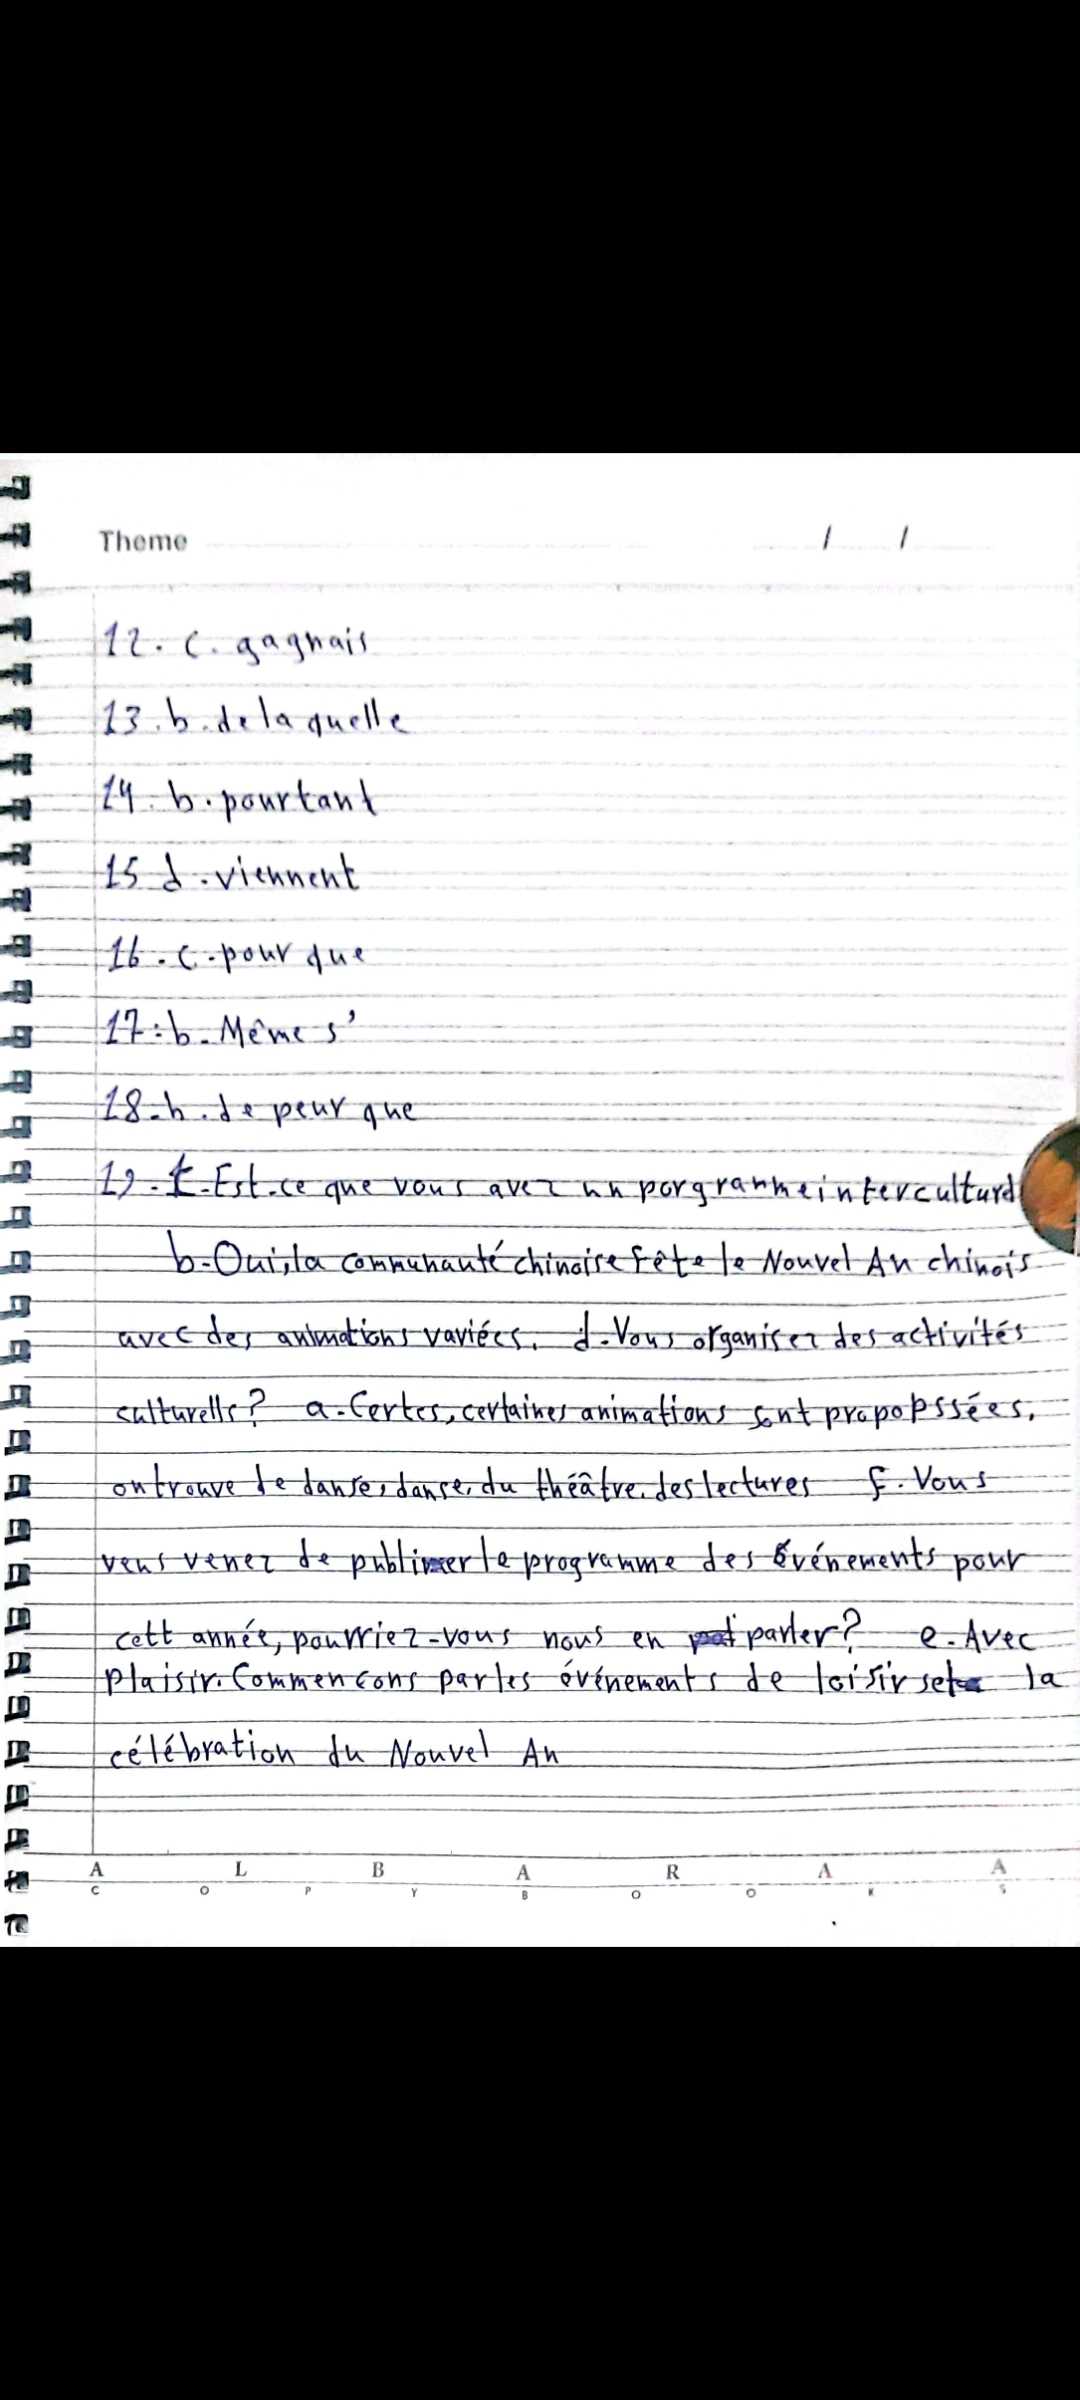 Theme / /
12. c. gagnais
13. b. de la quelle
14. b. pourtant
15 d. viennent
16. c. pour que
17: b. Même s'
18. b. de peur que
19. Est-ce que vous avez un porgramme interculturel
b-Oui, la communauté chinoise Fête le Nouvel An chinois
avec des animations variées. d-Vous organisez des activités
culturells? a-Certes, certaines animations sont propopssées,
on trouve de danse, danse, du théâtre, des lectures F. Vous
vens venez de publier le programme des événements pour
cett année, pourriez-vous nous en parler? e-Avec
plaisir. Commencons par les événements de loisirs et la
célébration du Nouvel An
A L B A R A A
C O P Y B O O K S